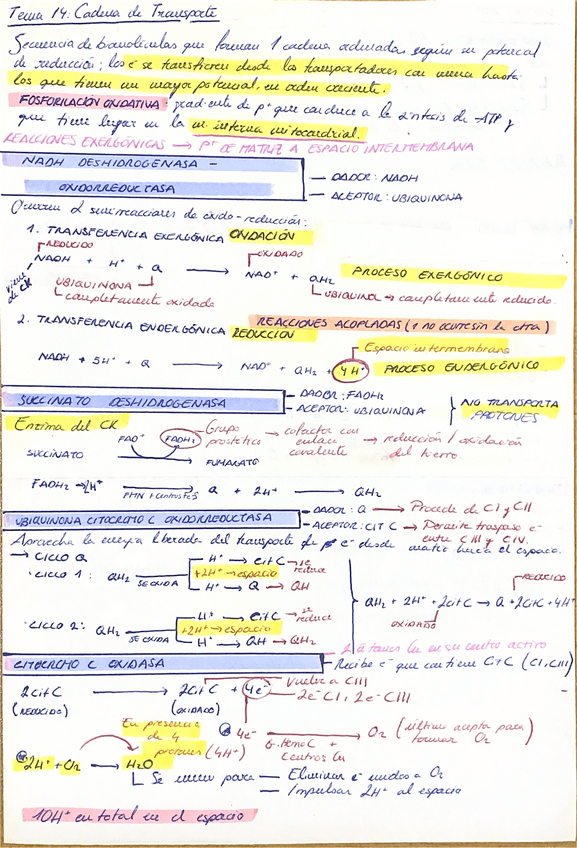 Tema 14: Cadena de Transporte
Secuencia de biomoléculas que forman 1 cadena ordenadas según su potencial
de reducción; los e⁻ se transfieren desde los transportadores con menor hasta
los que tienen un mayor potencial, en orden creciente.
FOSFORILACIÓN OXIDATIVA: gradiente de p⁺ que conduce a la síntesis de ATP y
que tiene lugar en la m. interna mitocondrial.
REACCIONES EXERGÓNICAS → P⁺ DE MATRIZ A ESPACIO INTERMEMBRANA
NADH DESHIDROGENASA –
OXIDORREDUCTASA
– DADOR: NADH
– ACEPTOR: UBIQUINONA
Ocurren 2 semirreacciones de óxido-reducción:
1. TRANSFERENCIA EXERGÓNICA OXIDACIÓN
REDUCIDO OXIDADO
NADH + H⁺ + Q → NAD⁺ + QH₂ PROCESO EXERGÓNICO
viene de CK
UBIQUINONA UBIQUINOL → completamente reducido.
completamente oxidada
2. TRANSFERENCIA ENDERGÓNICA REDUCCIÓN REACCIONES ACOPLADAS (1 no ocurre sin la otra)
Espacio intermembrana
NADH + 5H⁺ + Q → NAD⁺ + QH₂ + 4H⁺ PROCESO ENDERGÓNICO
SUCCINATO DESHIDROGENASA
– DADOR: FADH₂
– ACEPTOR: UBIQUINONA
NO TRANSPORTA PROTONES
Enzima del CK
FAD⁺ FADH₂ Grupo prostético → cofactor con enlace covalente → reducción / oxidación del hierro.
SUCCINATO FUMARATO
FADH₂ → 2H⁺ Q + 2H⁺ → QH₂
UBIQUINONA CITOCROMO C OXIDORREDUCTASA
– DADOR: Q → Procede de CI y CII
– ACEPTOR: CIT C → Permite traspaso e⁻ entre CIII y CIV.
Aprovecha la energía liberada del transporte de e⁻ desde matriz hacia el espacio.
→ CICLO Q
· CICLO 1: QH₂ SE OXIDA
H⁺ → Cit C → se reduce
+2H⁺ → espacio
H⁺ → Q → QH
REDUCIDO
QH₂ + 2H⁺ + 2citC → Q + 2CitC + 4H⁺
OXIDADO
· CICLO 2: QH₂ SE OXIDA
H⁺ → CitC → se reduce
+2H⁺ → espacio
H⁺ → QH → QH₂
en su centro activo
CITOCROMO C OXIDASA – Recibe e⁻ que contiene CitC (CI, CIII)
2CitC → 2CitC + 4e⁻ Vuelve a CIII
(REDUCIDO) (OXIDADO) 2e⁻ CI, 2e⁻ CIII
En presencia de 4 protones (4H⁺)
4e⁻ → O₂ (último aceptor para formar O₂)
G. Hemo C + Centros Cu
2H⁺ + O₂ → H₂O
Se unen para – Eliminar e⁻ unidos a O₂
– Impulsar 2H⁺ al espacio
10H⁺ en total en el espacio